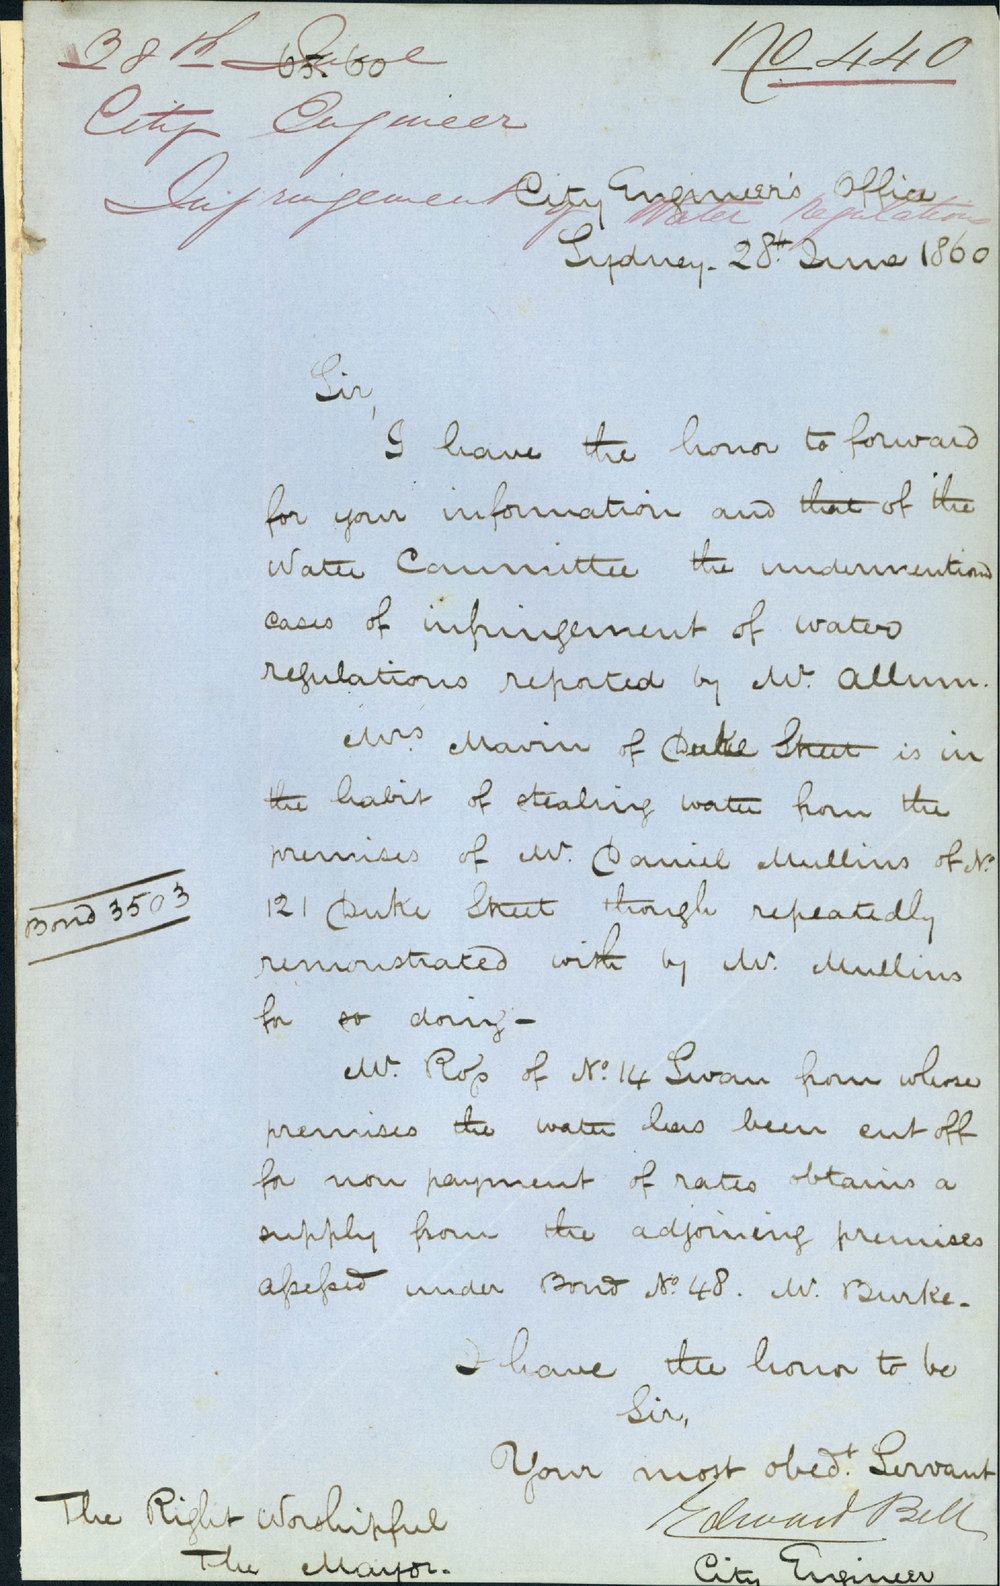 28th June
63.60
No 440
City Engineer
Infringement of Water regulations
City Engineer's Office
Sydney. 28th June 1860
Sir,
I have the honor to forward
for your information and that of the
Water Committee the undermentiond
cases of infringement of water
regulations reported by Mr. Allum.
Mrs. Mavin of Duke Street is in
the habit of stealing water from the
premises of Mr. Daniel Mullins of No.
121 Duke Street though repeatedly
remonstrated with by Mr. Mullins
for so doing-
Bond 3503
Mr. Roſs of No. 14 Swan from whose
premises the water has been cut off
for non payment of rates obtains a
supply from the adjoining premises
aſseſsed under Bond No. 48. Mr. Burke-
I have the honor to be
Sir,
Your most obedt. Servant
Edward Bell
City Engineer
The Right Worshipful
The Mayor.